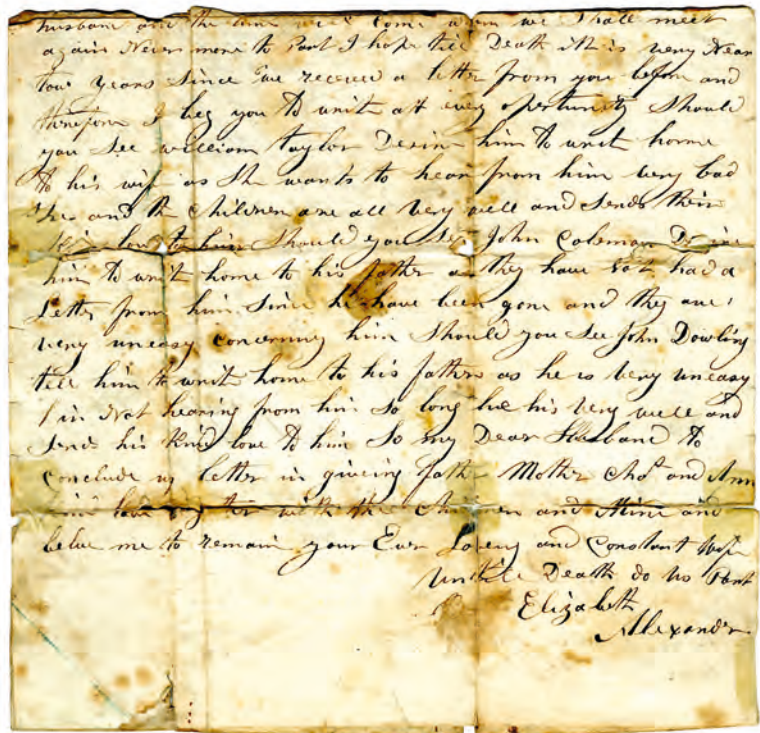 husband and the time will come when we Shall meet
again Never more to Part I hope till Death it is very Near
tow years since I've received a letter from you before and
therefore I beg you to writ at every opertunity Should
you See william Taylor Desire him to writ home
to his wife as She wants to hear from him very bad
She and the Children are all very well and Sends their
love to him Should you See John Coleman Desire
him to writ home to his father as they have Not had a
Letter from him Since he have been gone and they are
very uneasy concerning him Should you See John Dowling
tell him to writ home to his father as he is very uneasy
in Not hearing from him So long he his very well and
Sends his Kind love to him So my Dear Husband to
conclude my letter in giveing father Mother Chas and Ann
Kind love with the Children and Mine and
beleve me to remain your Ever Loveing and Constant Wife
Untill Death do us Part
Elizabeth
Alexander